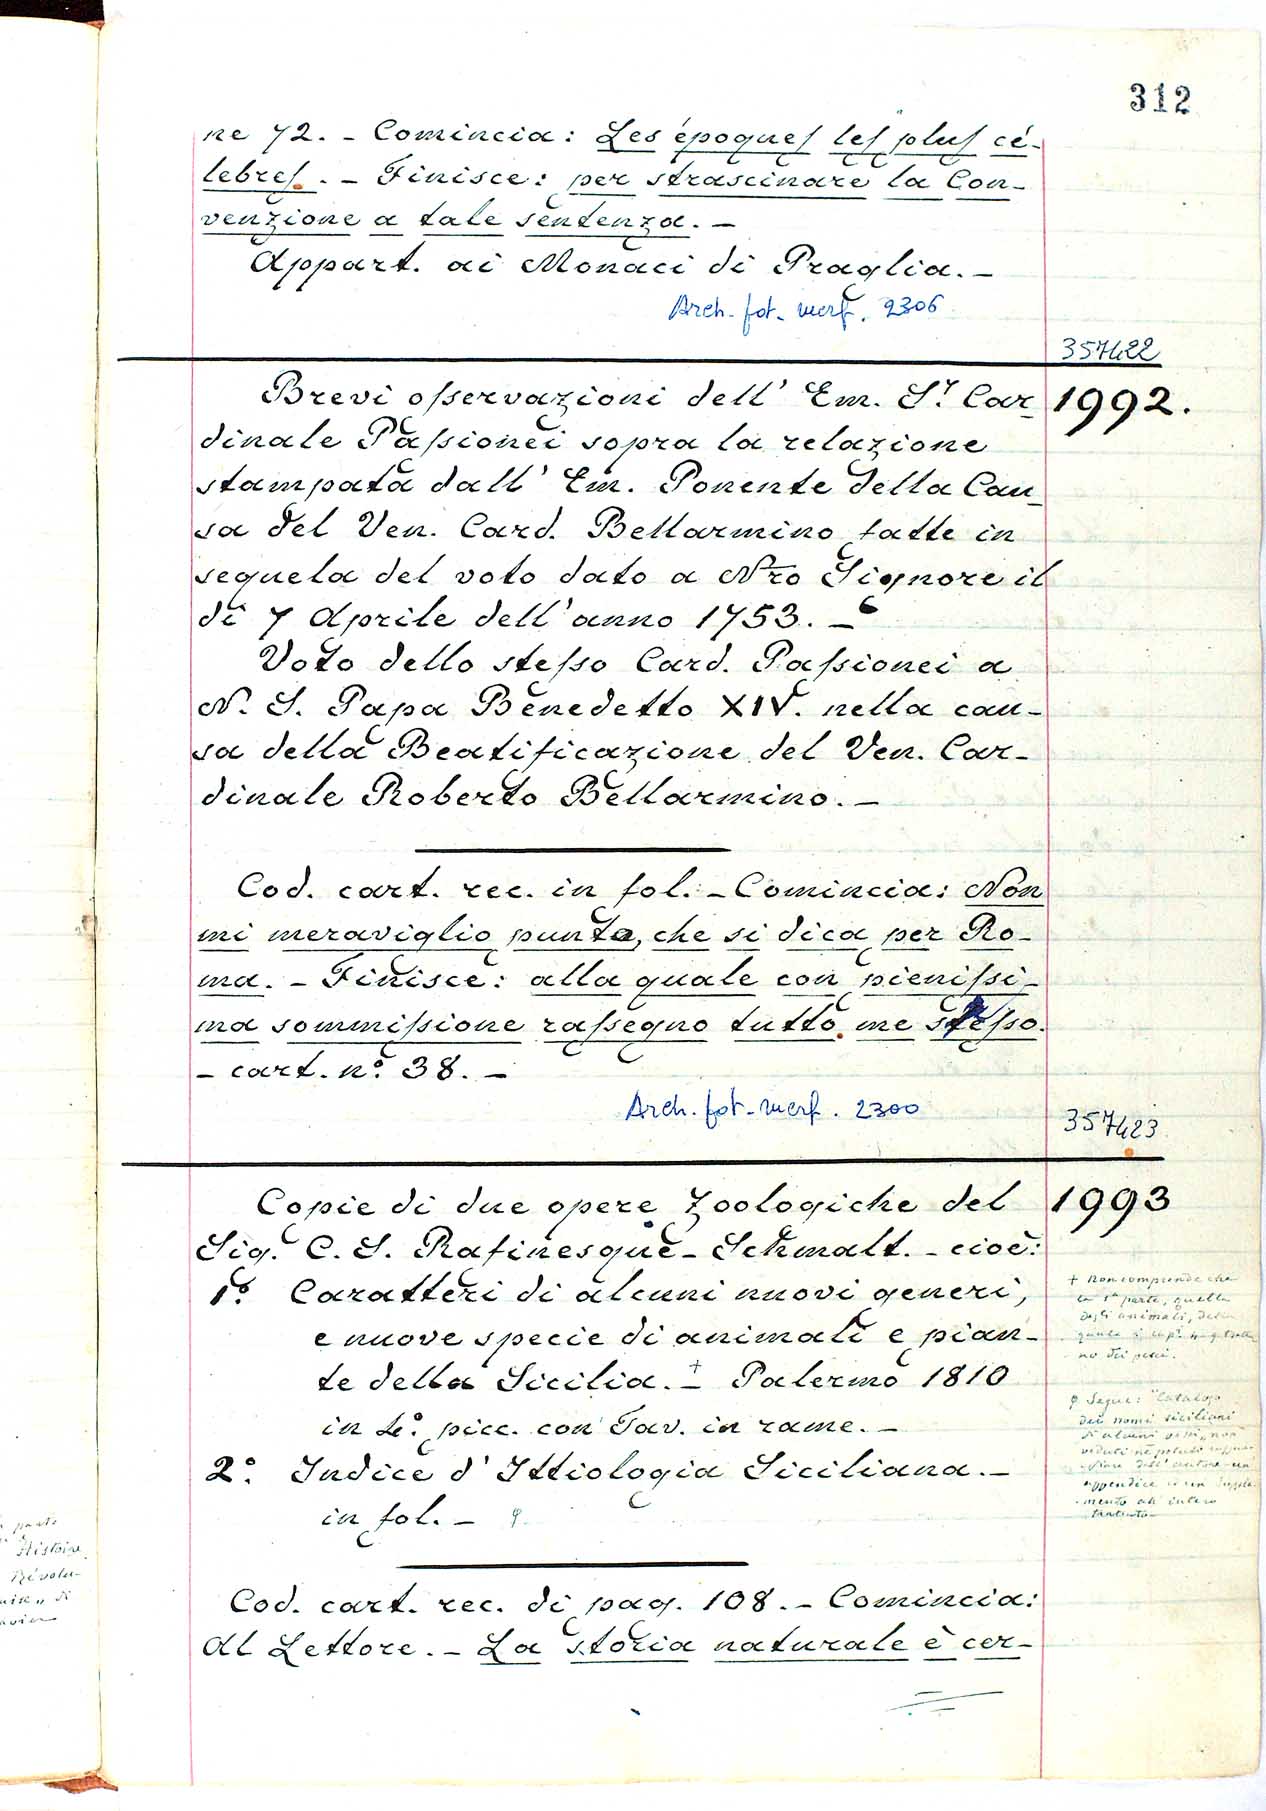 312
ne 72. – Comincia: Les époques les plus cé-
lebres. – Finisce: per strascinare la Con-
venzione a tale sentenza. –
Appart. ai Monaci di Praglia. –
Arch. fot. merf. 2306
357422
Brevi oſservazioni dell' Em. Sr. Car-
1992.
dinale Paſsionei sopra la relazione
stampata dall' Em. Ponente della Cau-
sa del Ven. Card. Bellarmino fatte in
sequela del voto dato a Nro Signore il
di 7 Aprile dell'anno 1753. –
Voto dello steſso Card. Paſsionei a
N. S. Papa Benedetto XIV. nella cau-
sa della Beatificazione del Ven. Car-
dinale Roberto Bellarmino. –
Cod. cart. rec. in fol. – Comincia: Non
mi meraviglio punto, che si dica per Ro-
ma. – Finisce: alla quale con pieniſsi-
ma sommiſsione raſsegno tutto me steſso.
– cart. n.º 38. –
Arch. fot. merf. 2300
357423
Copie di due opere Zoologiche del
1993
Sig. C. S. Rafinesque – Schmalt. – cioè:
1º. Caratteri di alcuni nuovi generi,
e nuove specie di animali e pian-
te della Sicilia. + – Palermo 1810
in 4º. picc. con Tav. in rame. –
2º. Indice d'Ittiologia Siciliana. –
in fol. – φ
+ Non comprende che
la 1ª parte, quella
degli animali, della
no dei pesci.
φ Segue: "Catalogo
dei nomi siciliani
di alcuni pesci, non
veduti nè potuto
dell'autore – un
appendice e un Supple-
mento all'intero
trattato –
Cod. cart. rec. di pag. 108. – Comincia:
Al Lettore. – La storia naturale è cer-
parte
Histoire
Révolu-